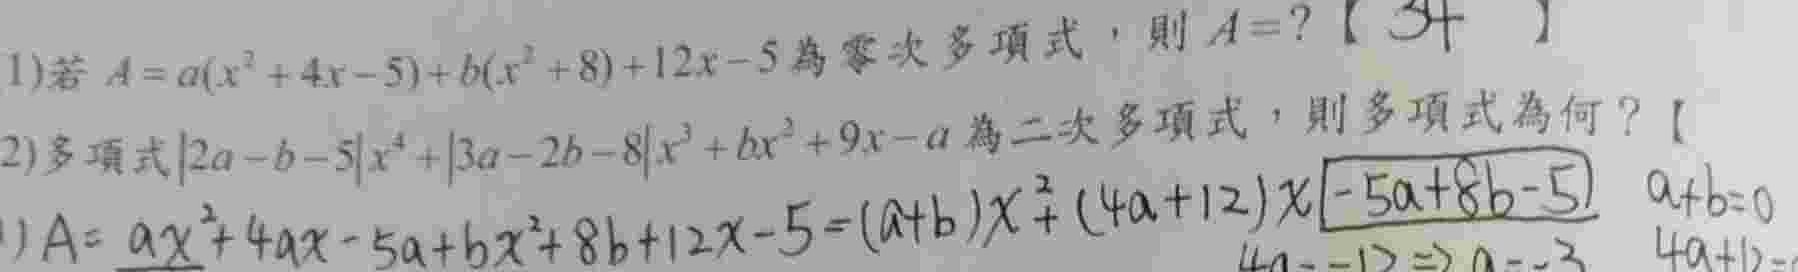 1)若 A=a(x²+4x-5)+b(x²+8)+12x-5為零次多項式，則 A=?【 34 】
2)多項式|2a-b-5|x⁴+|3a-2b-8|x³+bx²+9x-a 為二次多項式，則多項式為何？【
1) A= ax²+4ax-5a+bx²+8b+12x-5=(a+b)x²+(4a+12)x-5a+8b-5 a+b=0
4a=-12⇒a=-3 4a+12=